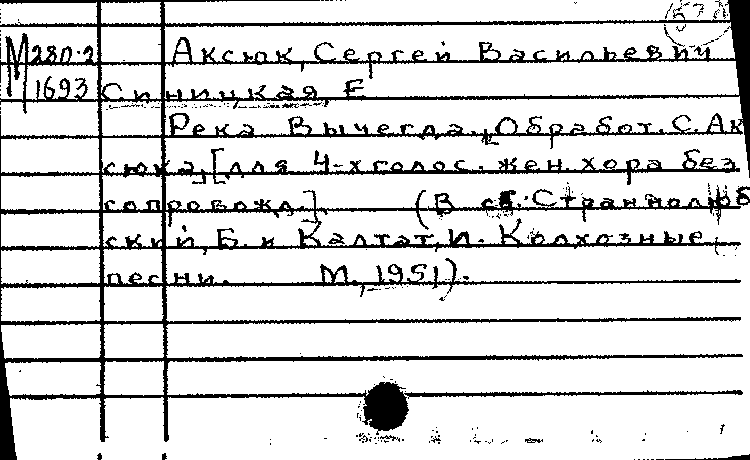 М280-2
1693
Аксюк, Сергей Васильевич
Синицкая, Е
Река Вычегда. Обработ. С. Ак
сюка, [для 4-х голос. жен. хора без
сопровожд.] (В сб.: Страннолюб
ский, Б. и Калтат, И. Колхозные
песни. М., 1951).